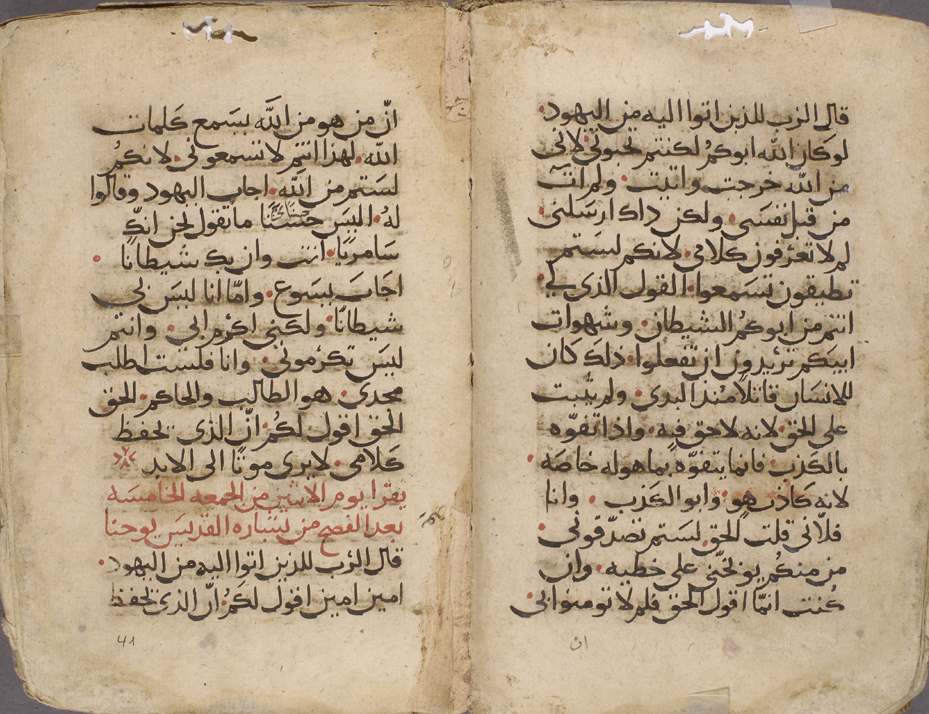 قال الرب للذين اتوا اليه من اليهود
لو كان الله ابوكم لكنتم تحبوني لاني
من الله خرجت واتيت ولم ات
من قبل نفسي ولكن داك ارسلني
لم لا تعرفون كلامي لانكم لستم
تطيقون تسمعوا القول الذي لي
انتم من ابوكم الشيطان وشهوات
ابيكم تريدون ان تفعلوا ذلك كان
للانسان قاتلا منذ البدي ولم يثبت
على الحق لانه لا حق فيه واذا تفوه
بالكذب فانما يتفوه بما هو له خاصه
لانه كاذب هو وابو الكذب وانا
فلاني قلت الحق لستم تصدقوني
من منكم يوبخني على خطيه وان
كنت انما اقول الحق فلم لا تومنوا بي
ان من هو من الله يسمع كلمات
الله لهذا انتم لا تسمعوني لانكم
لستم من الله اجاب اليهود وقالوا
له اليس حسنا ما نقول نحن انك
سامريا انت وان بك شيطانا
اجاب يسوع واما انا ليس لي
شيطانا ولكني اكرم ابي وانتم
ليس تكرموني وانا فلست اطلب
مجدي هو الطالب والحاكم الحق
الحق اقول لكم ان الذي يحفظ
كلامي لا يرى موتا الى الابد
يقرا يوم الاثنين من الجمعه الخامسه
بعد الفصح من بشاره القديس يوحنا
قال الرب للذين اتوا اليه من اليهود
امين امين اقول لكم ان الذي يحفظ
41